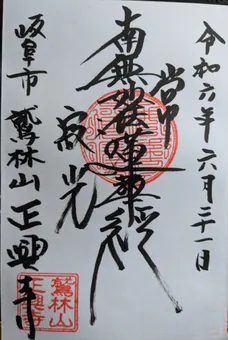 令和六年 六月二十一日
南無妙法蓮華経
寂光
岐阜市 鷲林山 正興寺
鷲林山
正興寺